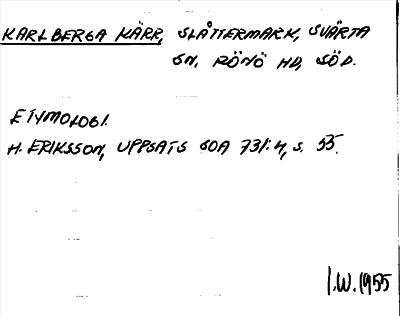 KARLBERGA KÄRR, SLÅTTERMARK, SVÄRTA
SN, RÖNÖ HD, SÖD.
ETYMOLOGI.
H. ERIKSSON, UPPSATS SOA 731:4, S. 55.
I.W. 1955